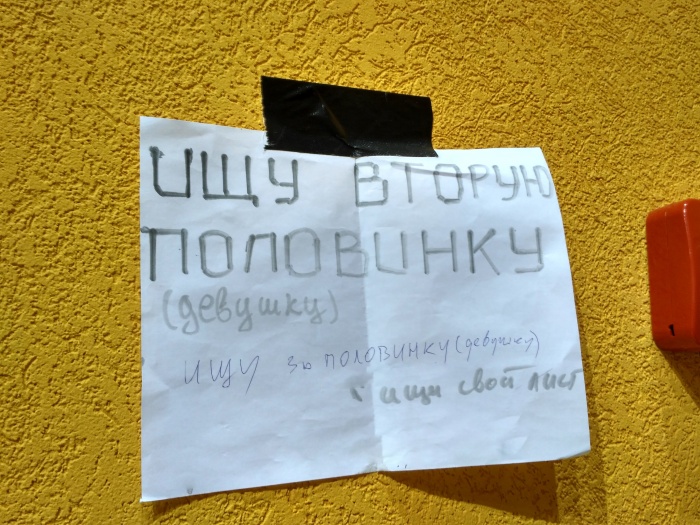 ИЩУ ВТОРУЮ
ПОЛОВИНКУ
(девушку)
ИЩУ 3ю ПОЛОВИНКУ (девушку)
ищи свой лист
1